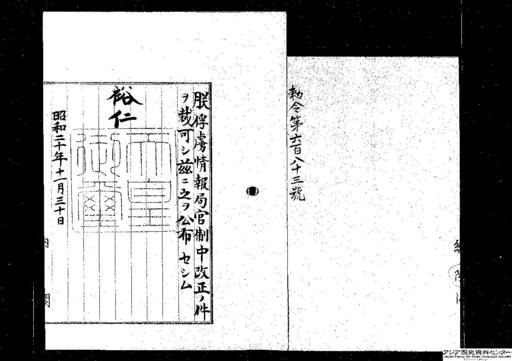 勅令第六百八十三號
朕俘虜情報局官制中改正ノ件
ヲ裁可シ茲ニ之ヲ公布セシム
裕仁
天皇御璽
昭和二十年十一月三十日
内閣
アジア歴史資料センター